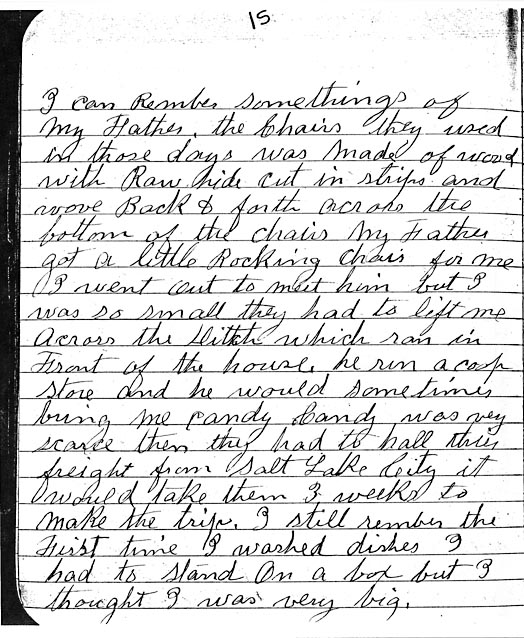 15
I can Rember somethings of
My Father. the Chairs they used
in those days was Made of wood
with Raw hide cut in strips and
wove Back & forth across the
bottom of the chairs My Father
got a little Rocking chair for me
I went out to meet him but I
was so small they had to lift me
Across the Ditch which ran in
Front of the house. he run a coop
store and he would sometimes
bring me candy Candy was very
scarce then they had to hall their
freight from Salt Lake City it
would take them 3 weeks to
Make the trip. I still rember the
First time I washed dishes I
had to stand On a box but I
thought I was very big.